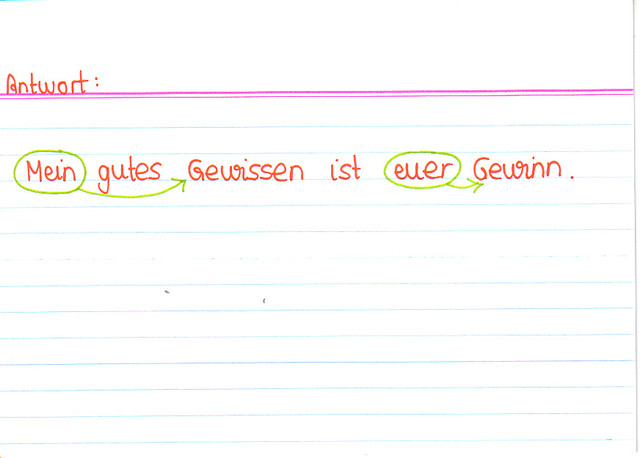 Antwort:
Mein gutes Gewissen ist euer Gewinn.